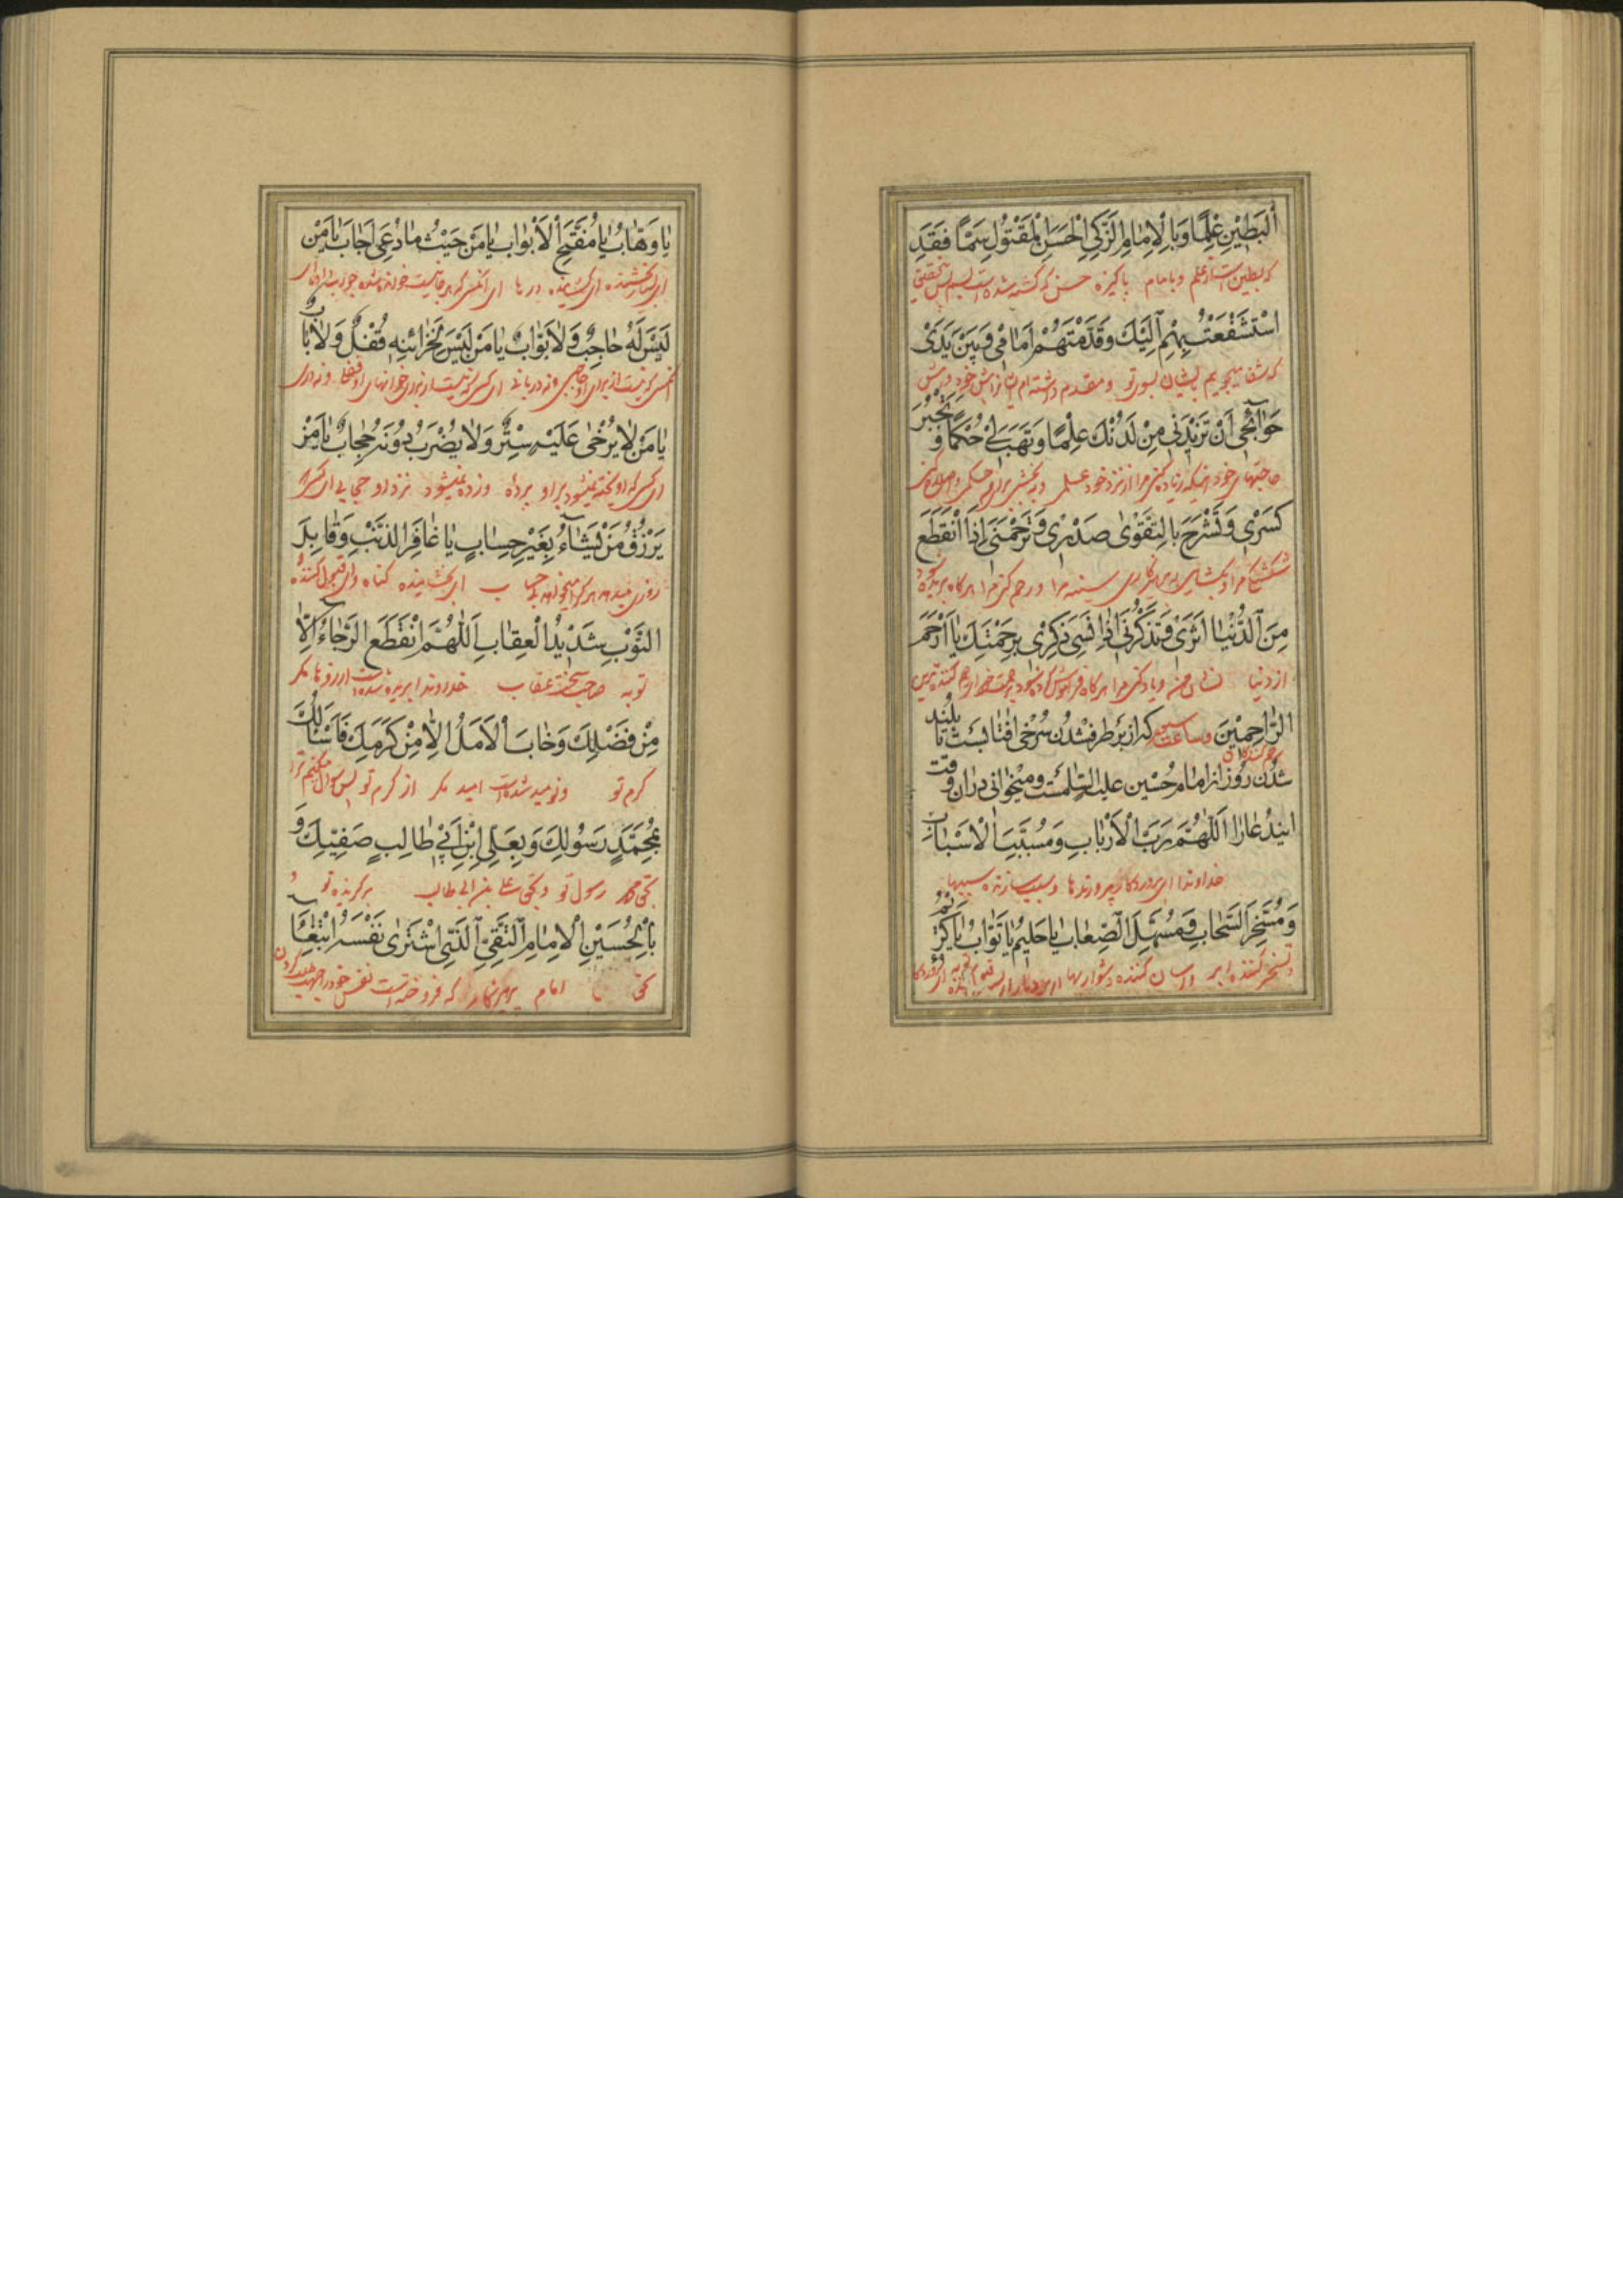 الْبَطِينِ عِلْمًا وَبِالْإِمَامِ الزَّكِيِّ الْحَسَنِ الْمَقْتُولِ سَمًّا فَقَدِ
که بطین است از علم و بامام پاکیزه حسن که کشته شده است بسم پس بتحقیق
اسْتَشْفَعْتُ بِهِمْ إِلَيْكَ وَقَدَّمْتُهُمْ أَمَامِي وَبَيْنَ يَدَيْ
که شفا میجویم بایشان بسوی تو و مقدم داشته‌ام از پیش خود و پیش
حَوَائِجِي أَنْ تَزِيدَنِي مِنْ لَدُنْكَ عِلْمًا وَتَهَبَ لِي حُكْمًا وَتَجْبُرَ
حاجتهای خود اینکه زیاد کنی مرا از نزد خود علمی و ببخشی برای من حکمی و
كَسْرِي وَتَشْرَحَ بِالتَّقْوَى صَدْرِي وَتَرْحَمَنِي إِذَا انْقَطَعَ
شکستگی مرا و بکشایی به پرهیزکاری سینه مرا و رحم کنی مرا هر کاه بریده شود
مِنَ الدُّنْيَا أَثَرِي وَتَذْكُرَنِي إِذَا نُسِيَ ذِكْرِي بِرَحْمَتِكَ يَا أَرْحَمَ
از دنیا نشان من و یاد کنی مرا هر کاه فراموش کرده شود برحمت خود ای رحم کننده‌ترین
الرَّاحِمِينَ وساعت سیم که از برطرف شدن سرخی افتابست تا بلند
رحم کنندکان
شدن روز از امام حسین علیه السّلامست و میخوانی در ان وقت
ایندعارا اَللّٰهُمَّ رَبَّ الْأَرْبَابِ وَمُسَبِّبَ الْأَسْبَابِ
خداوندا ای پروردکار پرورندها و سبب سازنده سببها
وَمُسَخِّرَ السَّحَابِ وَمُسَهِّلَ الصِّعَابِ يَا حَلِيمُ يَا تَوَّابُ يَا كَرِيمُ
و مسخر کننده ابر و اسان کننده دشوارها ای بردبار
يَا وَهَّابُ يَا مُفَتِّحَ الْأَبْوَابِ يَا مَنْ حَيْثُ مَا دُعِيَ أَجَابَ يَا مَنْ
ای بسیار بخشنده ای کشاینده درها ای انکس که هر جاییست خوانده شده جواب داد ای
لَيْسَ لَهُ حَاجِبٌ وَلَا بَوَّابٌ يَا مَنْ لَيْسَ لِخَزَائِنِهِ قُفْلٌ وَلَا بَابٌ
کسی که نیست از برای او حاجبی و نه دربانی ای کسی که نیست از برای خزانهای او قفل و نه دری
يَا مَنْ لَا يُرْخَى عَلَيْهِ سِتْرٌ وَلَا يُضْرَبُ دُونَهُ حِجَابٌ يَا مَنْ
ای کسی که اویخته نمیشود بر او پرده و زده نمیشود نزد او حجابی ای کسی که
يَرْزُقُ مَنْ يَشَاءُ بِغَيْرِ حِسَابٍ يَا غَافِرَ الذَّنْبِ وَقَابِلَ
روزی میدهد هر کرا میخواهد بی حساب ای بخشاینده کناه و ای قبول کننده
التَّوْبِ شَدِيدَ الْعِقَابِ اَللّٰهُمَّ انْقَطَعَ الرَّجَاءُ إِلَّا
توبه صاحب سخت عقاب خداوندا بریده شده است ارزوها مکر
مِنْ فَضْلِكَ وَخَابَ الْأَمَلُ إِلَّا مِنْ كَرَمِكَ فَأَسْأَلُكَ
کرم تو و نومید شده است امید مکر از کرم تو پس سؤال میکنم ترا
بِمُحَمَّدٍ رَسُولِكَ وَبِعَلِيِّ ابْنِ أَبِي طَالِبٍ صَفِيِّكَ وَ
بحق محمد رسول تو و بحق علی بن ابی طالب برکزیده تو و
بِالْحُسَيْنِ الْإِمَامِ التَّقِيِّ الَّذِي اشْتَرَى نَفْسَهُ ابْتِغَاءَ
بحق امام پرهیزکار که فروخته است نفس خود را بجهت طلب کردن